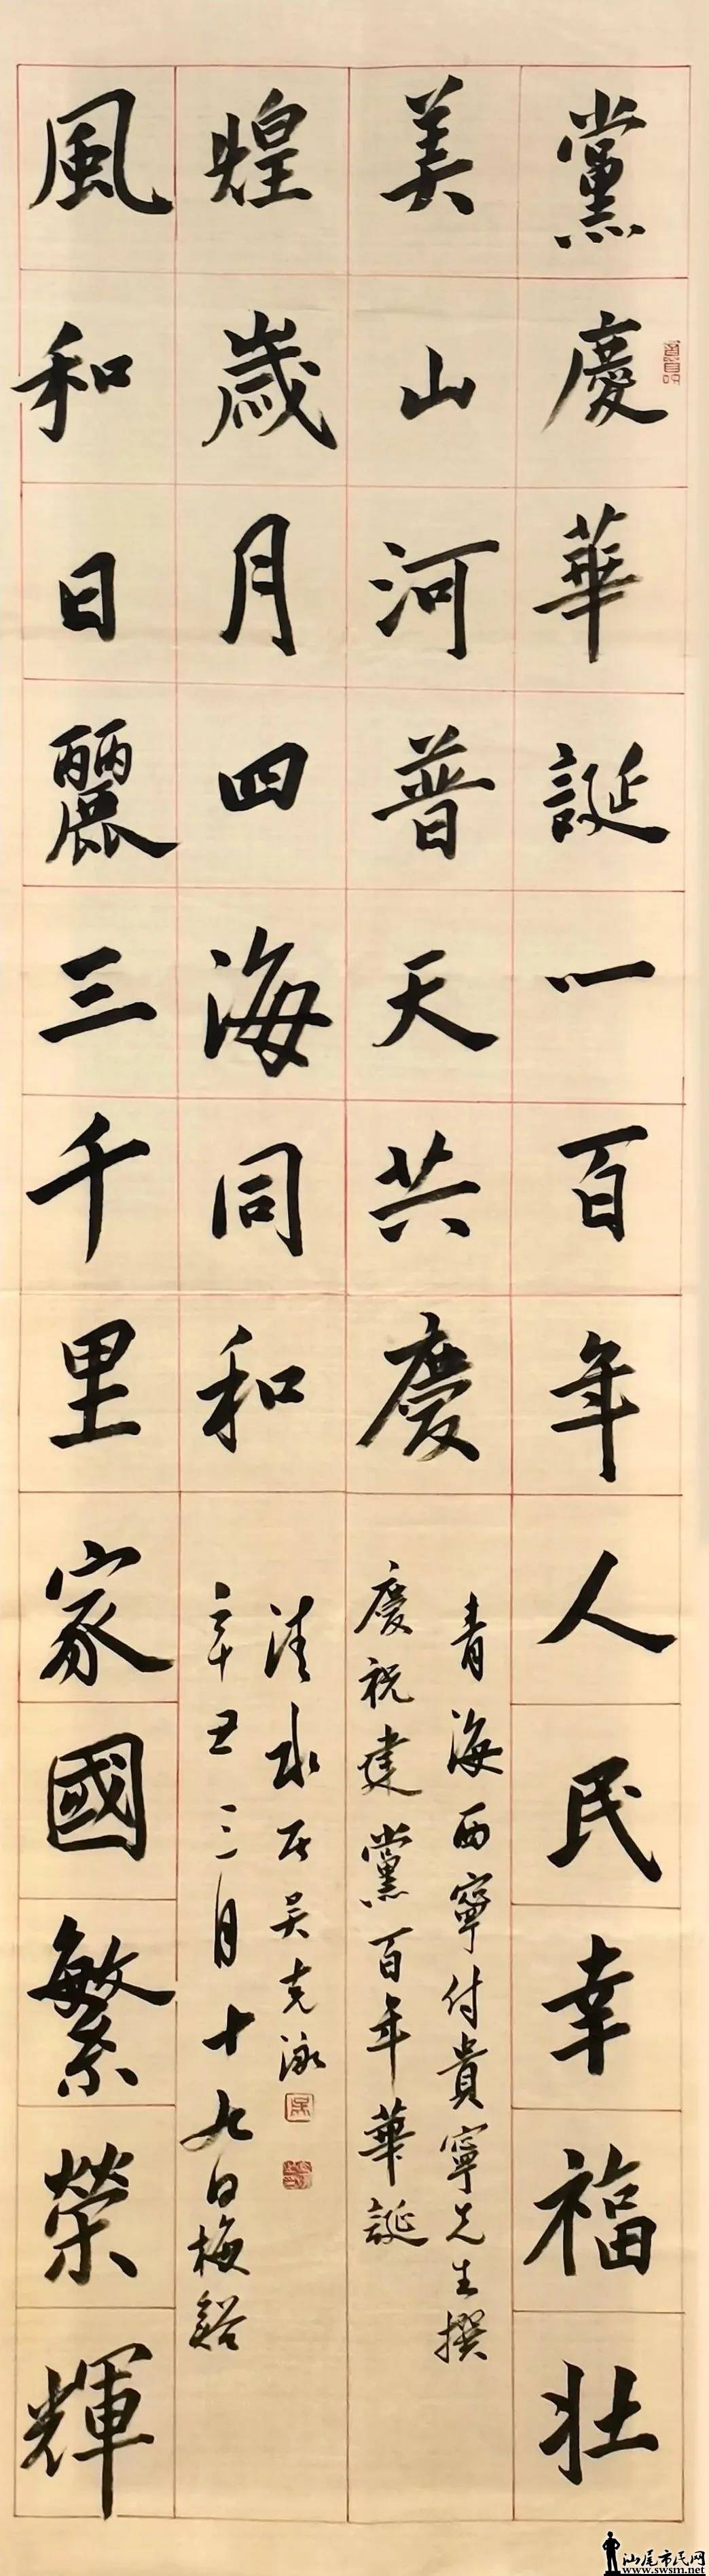 黨慶華誕一百年人民幸福壯
美山河普天共慶
青海西寧付貴寧先生撰
慶祝建黨百年華誕
風和日麗三千里家國繁榮輝
煌歲月四海同和
辛丑三月十九日梅谿
清水居吴克泳
汕尾市民网
www.swsm.net